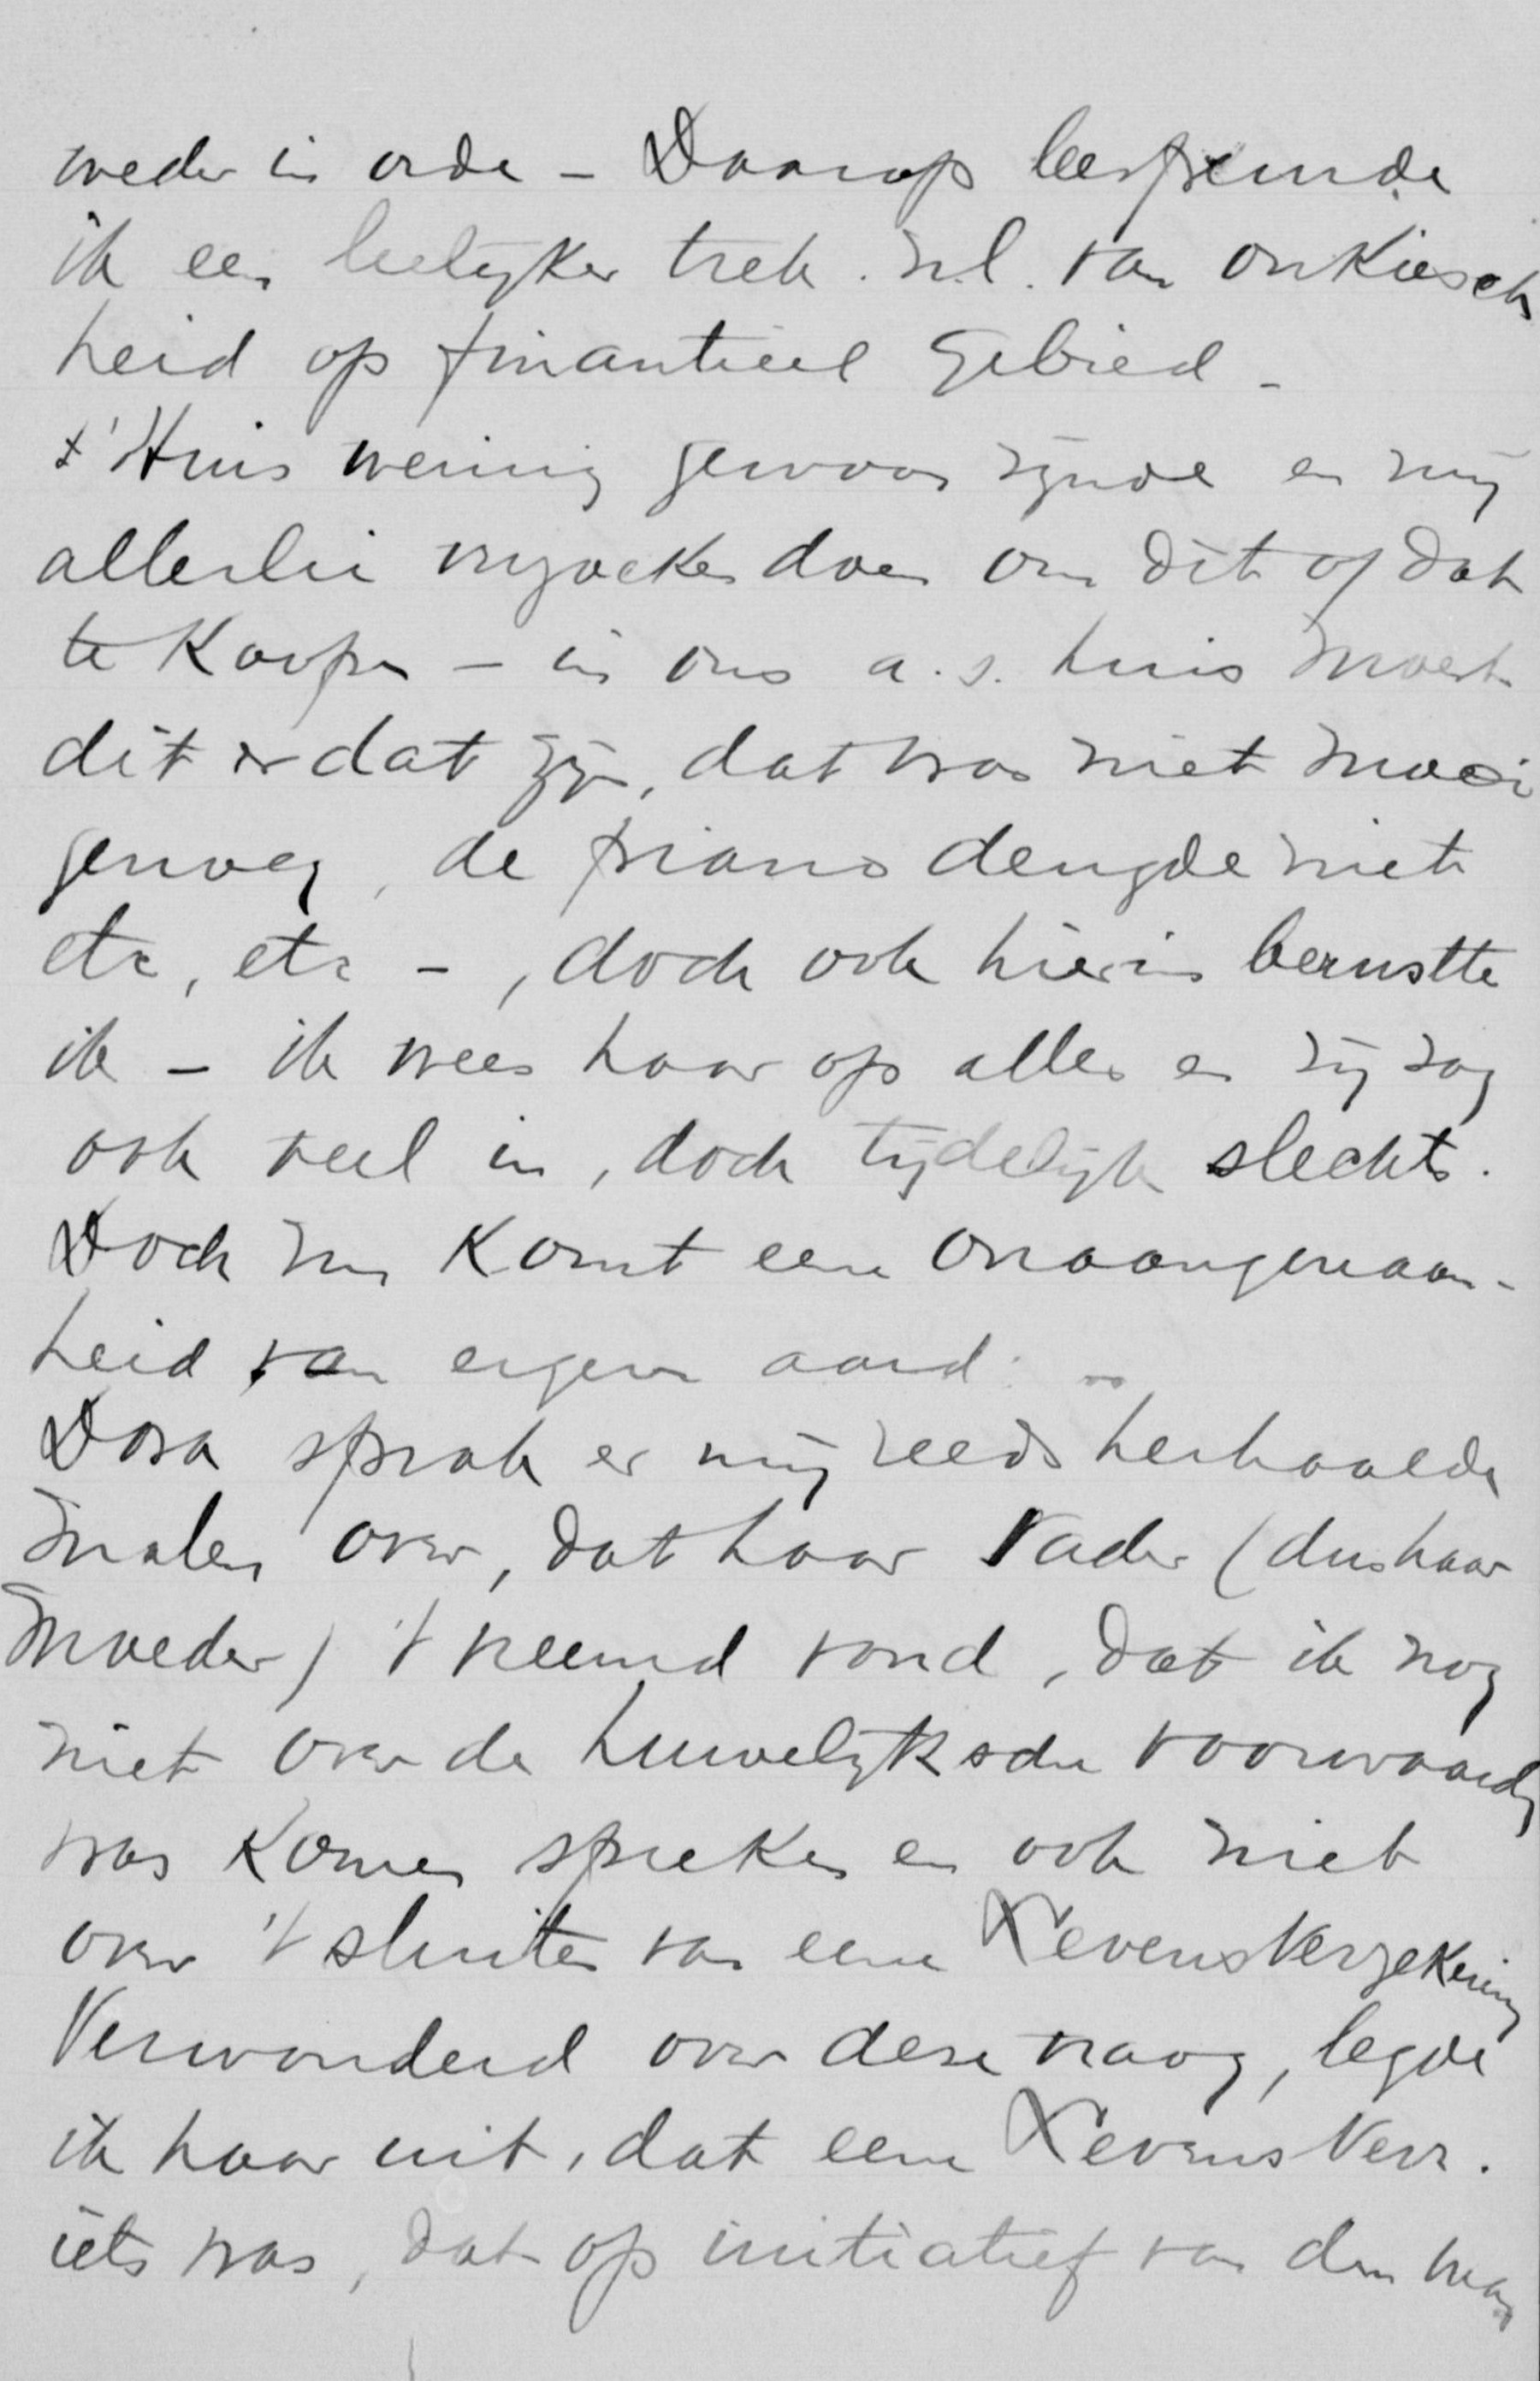 weder in orde – Daarop bespeurde
ik een leelijken trek. n.l. van onkiesch
heid op finantieel gebied –
t'Huis weinig gewoon zijnde en mij
allerlei verzoeken doen om dit of dat
te koopen – in ons a.s. huis moest
dit en dat zijn, dat was niet mooi
genoeg, de piano deugde niet
etc, etc –, doch ook hierin berustte
ik – ik wees haar op alles en zij zag
ook veel in, doch tijdelijk slechts.
Doch nu komt eene onaangenaam-
heid van eigen aard:
Dora sprak er mij reeds herhaalde
malen over, dat haar Vader (dus haar
Moeder) 't vreemd vond, dat ik nog
niet over de huwelijksche voorwaarden
was komen spreken en ook niet
over 't sluiten van eene LevensVerzekering
Verwonderd over deze vraag, legde
ik haar uit, dat eene LevensVerz.
iets was, dat op initiatief van den man